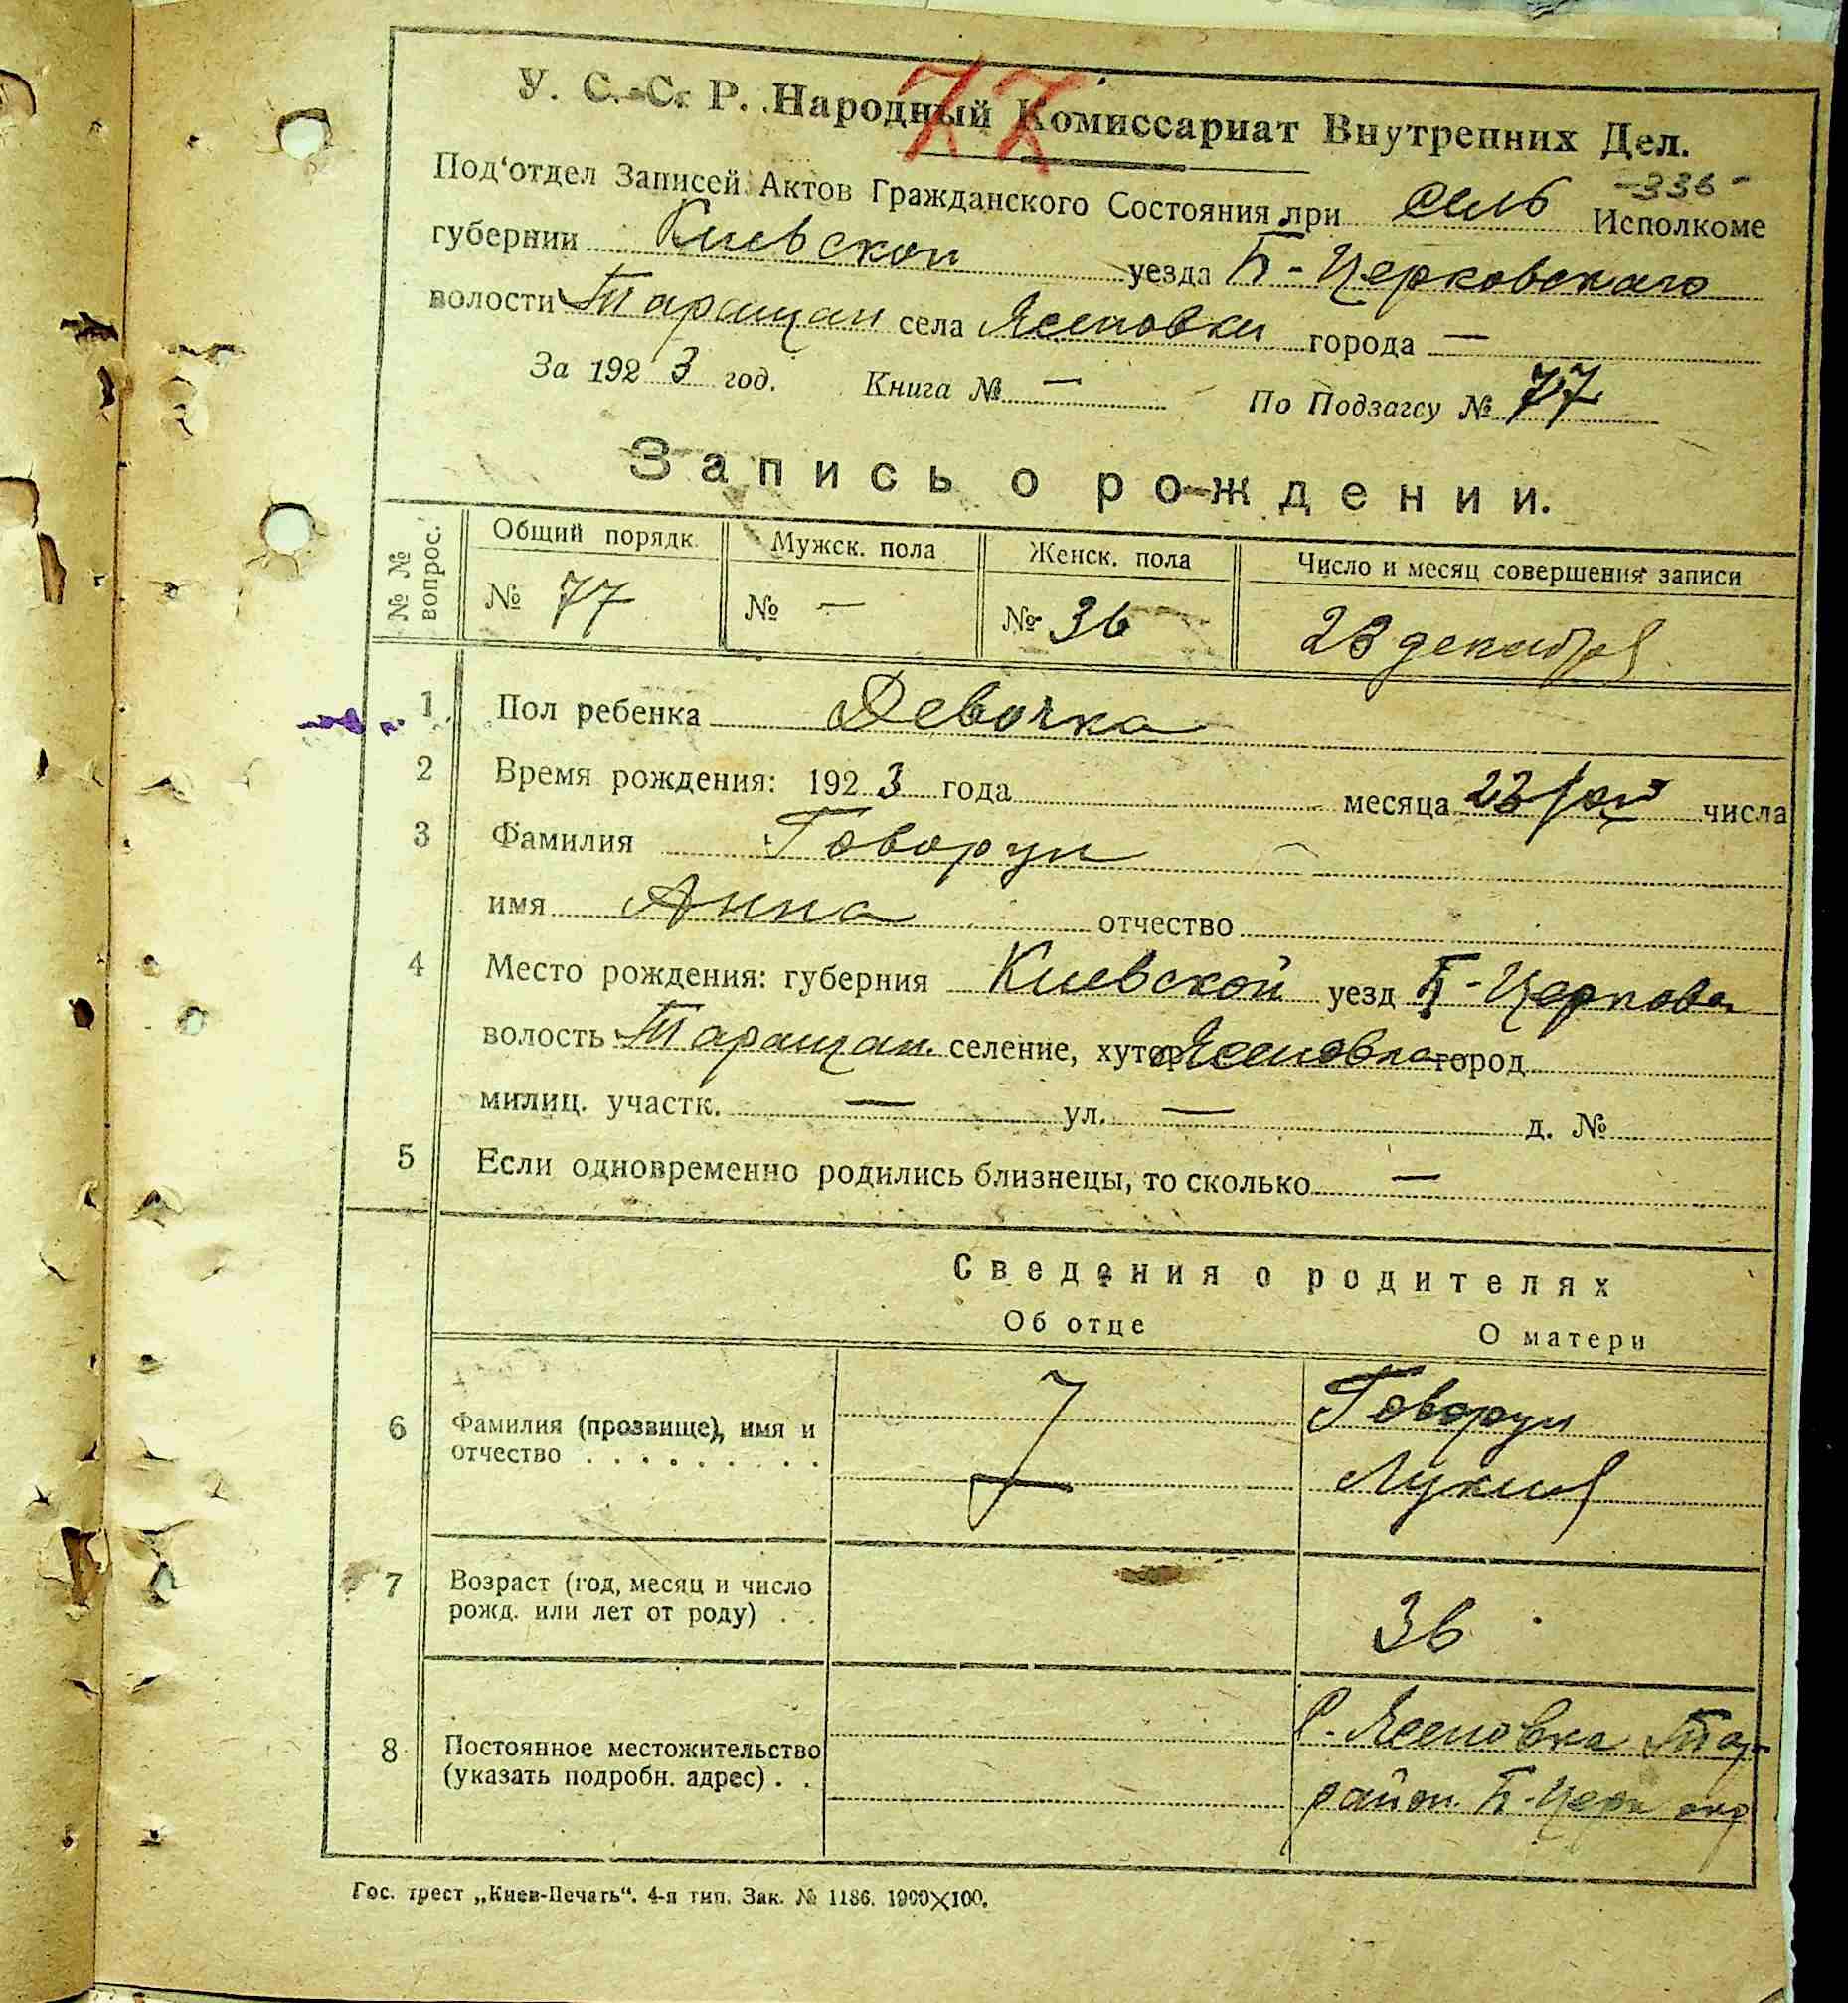 77
У. С. С. Р. Народный Комиссариат Внутренних Дел.
-336-
Под'отдел Записей Актов Гражданского Состояния при сель Исполкоме
губернии Киевской уезда Б-Церковскаго
волости Таращан села Ясеновки города —
За 1923 год. Книга № — По Подзагсу № 77
Запись о рождении.
№ № вопрос. Общий порядк. Мужск. пола Женск. пола Число и месяц совершения записи
№ 77 № — № 36 23 декабря
1 Пол ребенка Девочка
2 Время рождения: 1923 года месяца 23/XII числа
3 Фамилия Говорун
имя Анна отчество
4 Место рождения: губерния Киевской уезд Б-Церковск
волость Таращан. селение, хутор Ясеновка город
милиц. участк. — ул. — д. №
5 Если одновременно родились близнецы, то сколько —
Сведения о родителях
Об отце О матери
6 Фамилия (прозвище), имя и Говорун
отчество . . . . . . . . . Лукия
7 Возраст (год, месяц и число
рожд. или лет от роду) . . 36
8 Постоянное местожительство С. Ясеновка Тар.
(указать подробн. адрес) . . район. Б-Церк окр
Гос. трест „Киев-Печать“. 4-я тип. Зак. № 1186. 1900×100.